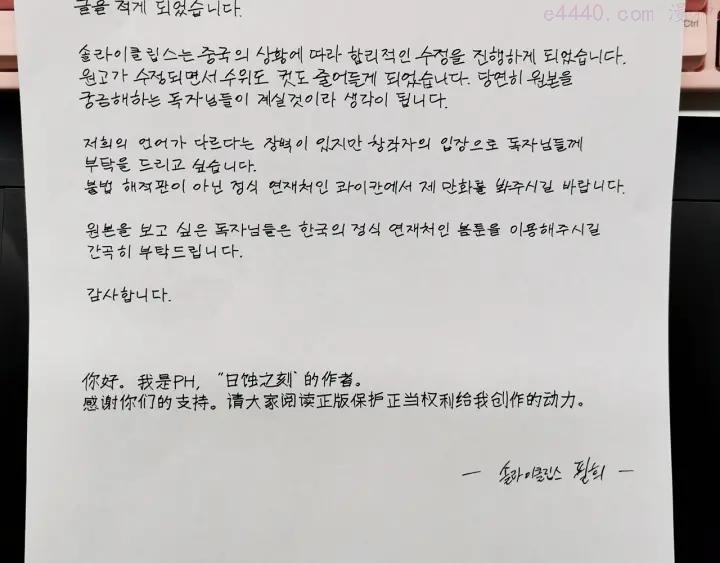 글을 적게 되었습니다.
솔라이클립스는 중국의 상황에 따라 합리적인 수정을 진행하게 되었습니다.
원고가 수정되면서 수위도 컷도 줄어들게 되었습니다. 당연히 원본을
궁금해하는 독자님들이 계실것이라 생각이 됩니다.
저희의 언어가 다르다는 장벽이 있지만 창작자의 입장으로 독자님들께
부탁을 드리고 싶습니다.
불법 해적판이 아닌 정식 연재처인 콰이칸에서 제 만화를 봐주시길 바랍니다.
원본을 보고 싶은 독자님들은 한국의 정식 연재처인 봄툰을 이용해주시길
간곡히 부탁드립니다.
감사합니다.
你好。我是PH，“日蚀之刻”的作者。
感谢你们的支持。请大家阅读正版保护正当权利给我创作的动力。
— 솔라이클립스 필희 —
e4440.com 漫
Ctrl